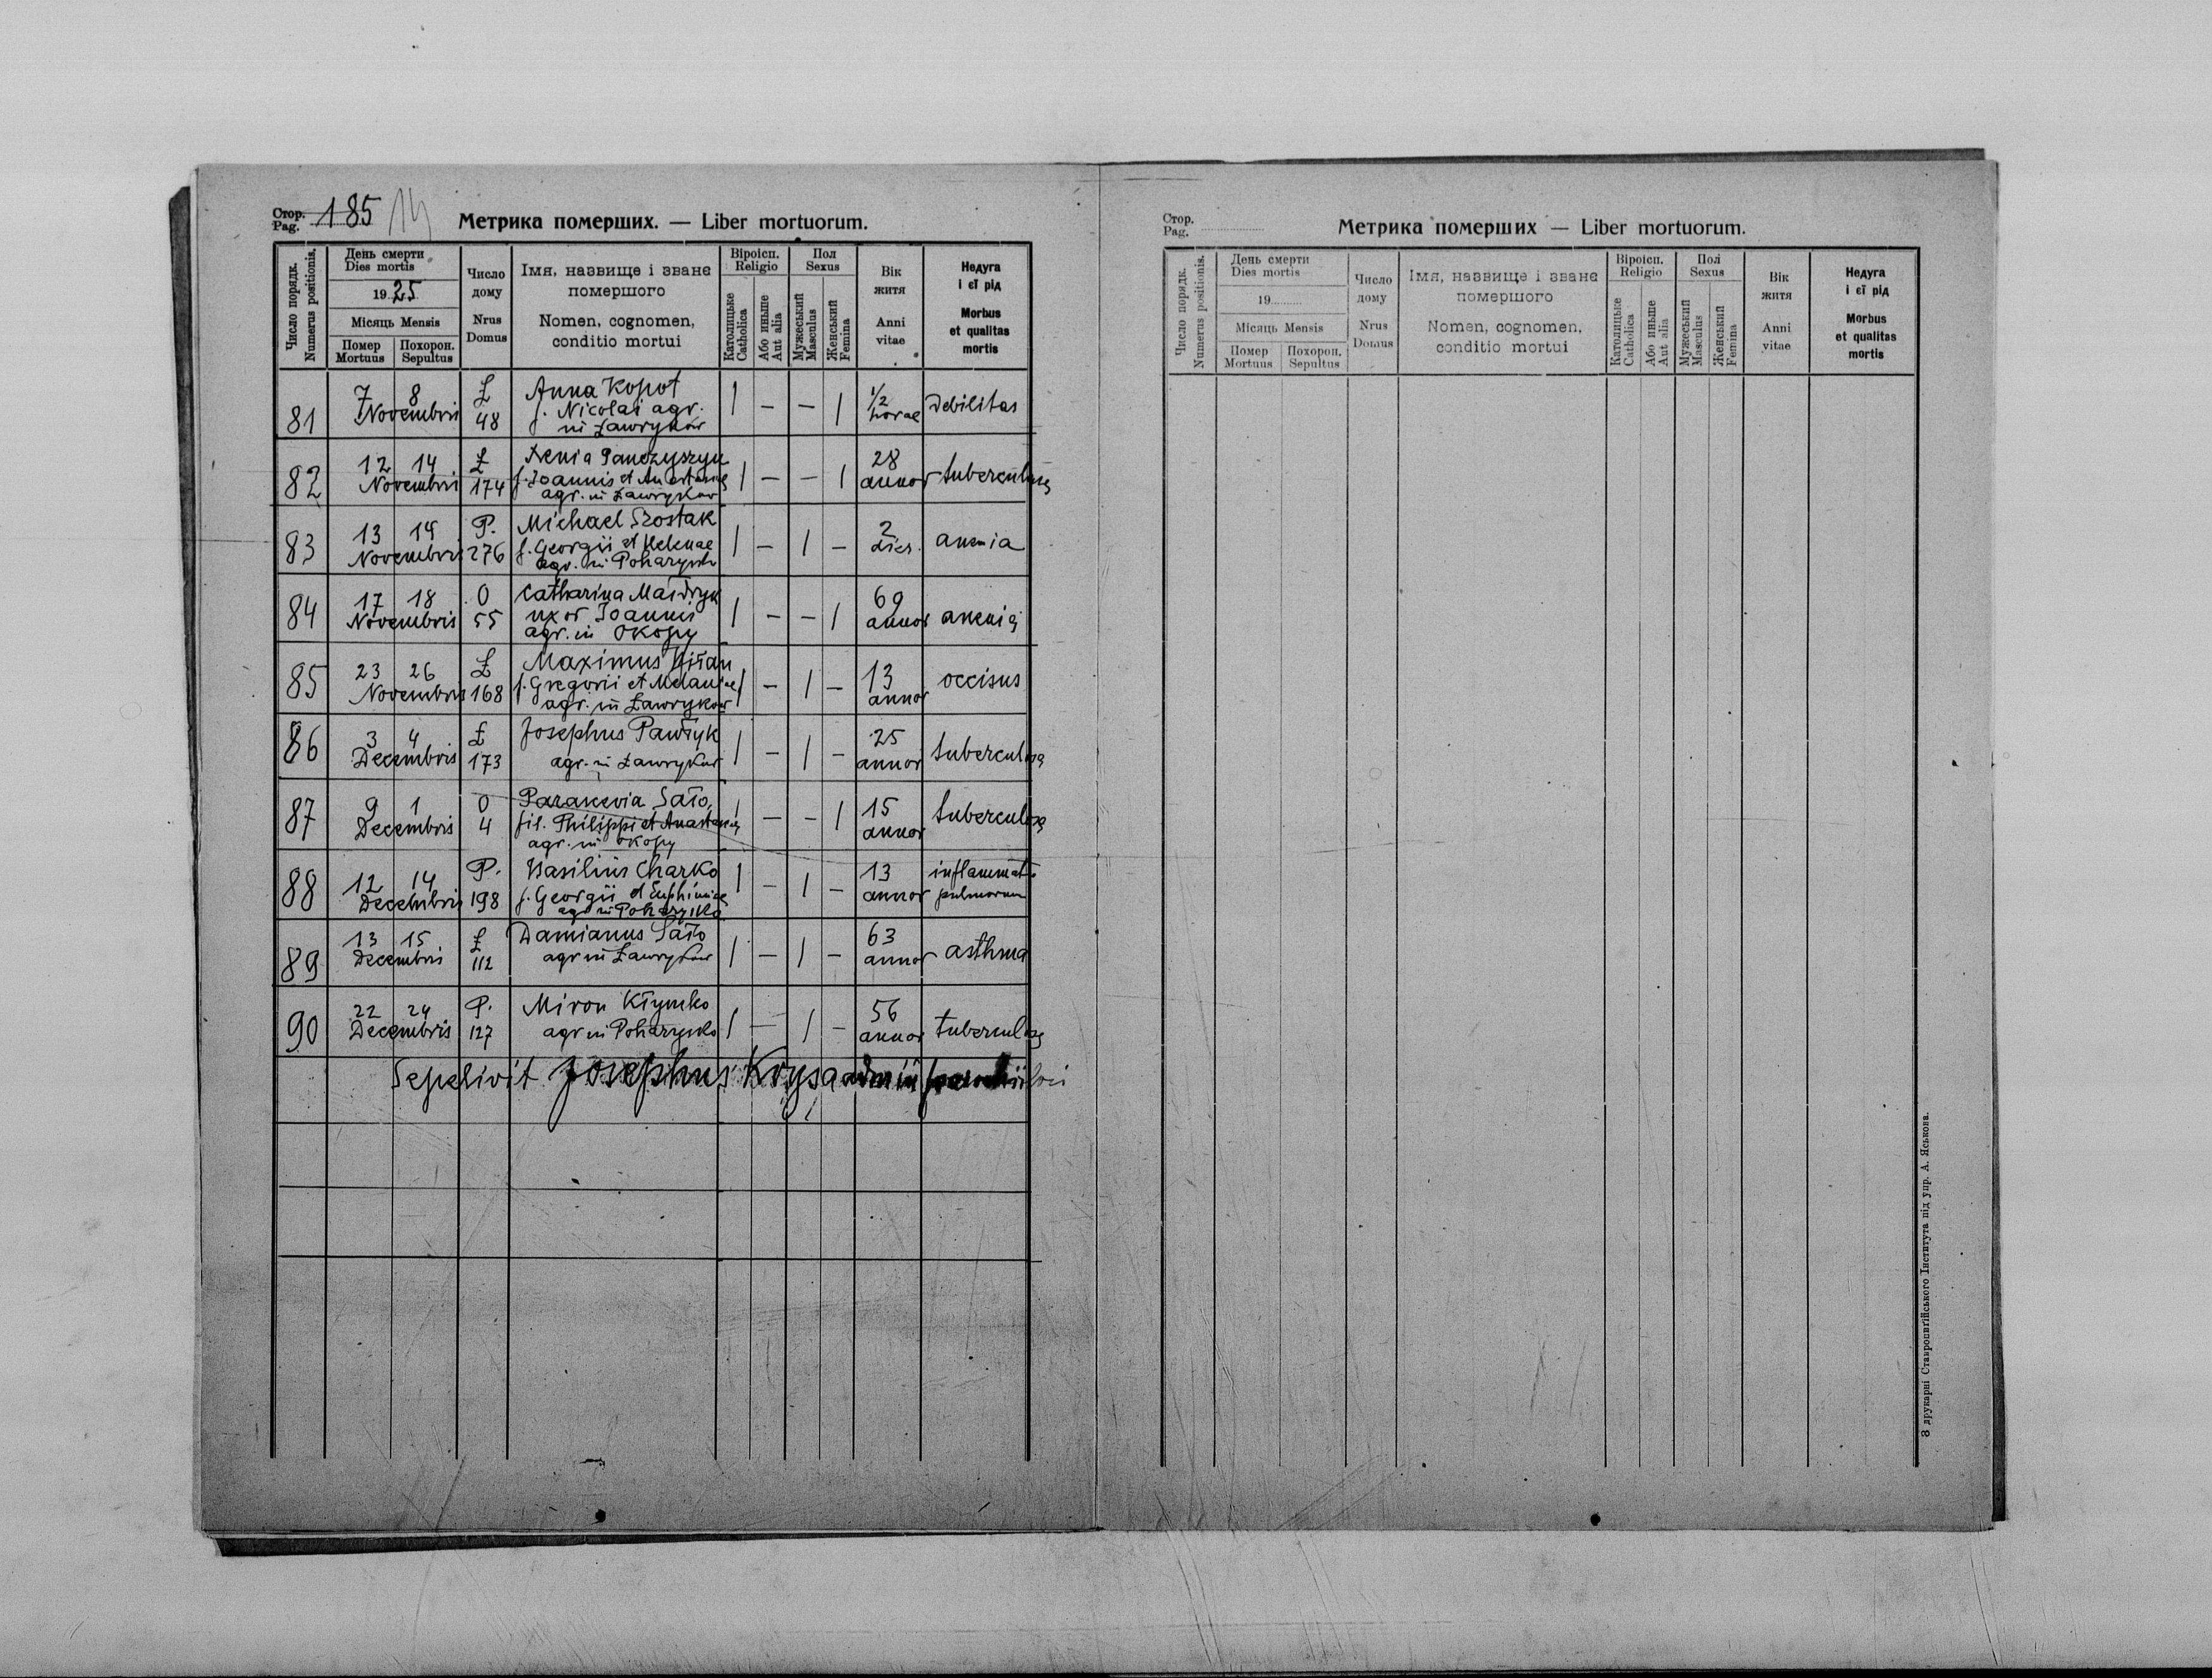 Стор. Pag. 185 14
Метрика померших. — Liber mortuorum.
Число порядк. Numerus positionis.
День смерти Dies mortis
1925
Місяць Mensis
Помер Mortuus
Похорон. Sepultus
Число дому Nrus Domus
Імя, назвище і званє помершого
Nomen, cognomen, conditio mortui
Віроісп. Religio
Католицьке Catholica
Або иньше Aut alia
Пол Sexus
Мужеський Masculus
Женський Femina
Вік житя Anni vitae
Недуга і єї рід Morbus et qualitas mortis
81 7 8 Novembris Ł 48 Anna Kopot
f. Nicolai agr.
in Ławryków
| — — | 1/2 horae Debilitas
82 12 14 Novembris Ł 174 Xenia Panczyszyn
f. Joannis et Anastasiae
agr. in Ławryków
| — — | 28 annor tuberculosa
83 13 14 Novembris P. 276 Michael Szostak
f. Georgii et Helenae
agr. in Poharysko
| — | — 2 dies. anemia
84 17 18 Novembris O 55 Catharina
uxor Joannis
agr. in Okopy
| — — | 69 annor anemia
85 23 26 Novembris Ł 168 Maximus
f. Gregorii et Melaniae
agr. in Ławryków
| — | — 13 annor occisus
86 3 4 Decembris Ł 173 Josephus Pawłyk
agr. in Ławryków
| — | — 25 annor tuberculosa
87 9 1 Decembris O 4 Parascevia Sało,
fil. Philippi et Anastasiae
agr. in Okopy
| — — | 15 annor tuberculosa
88 12 14 Decembris P. 198 Basilius Charko
f. Georgii et Euphimiae
agr in Poharysko
| — | — 13 annor inflammat. pulmorum
89 13 15 Decembris Ł 112 Damianus Sało
agr in Ławryków
| — | — 63 annor asthma
90 22 24 Decembris P. 127 Miron Kłymko
agr in Poharysko
| — | — 56 annor tuberculosa
Sepelivit Josephus Krysa
Стор. Pag.
Метрика померших — Liber mortuorum.
Число порядк. Numerus positionis.
День смерти Dies mortis
19
Місяць Mensis
Помер Mortuus
Похорон. Sepultus
Число дому Nrus Domus
Імя, назвище і званє помершого
Nomen, cognomen, conditio mortui
Віроісп. Religio
Католицьке Catholica
Або иньше Aut alia
Пол Sexus
Мужеський Masculus
Женський Femina
Вік житя Anni vitae
Недуга і єї рід Morbus et qualitas mortis
З друкарні Ставропигійського Інститута під упр. А. Яськова.